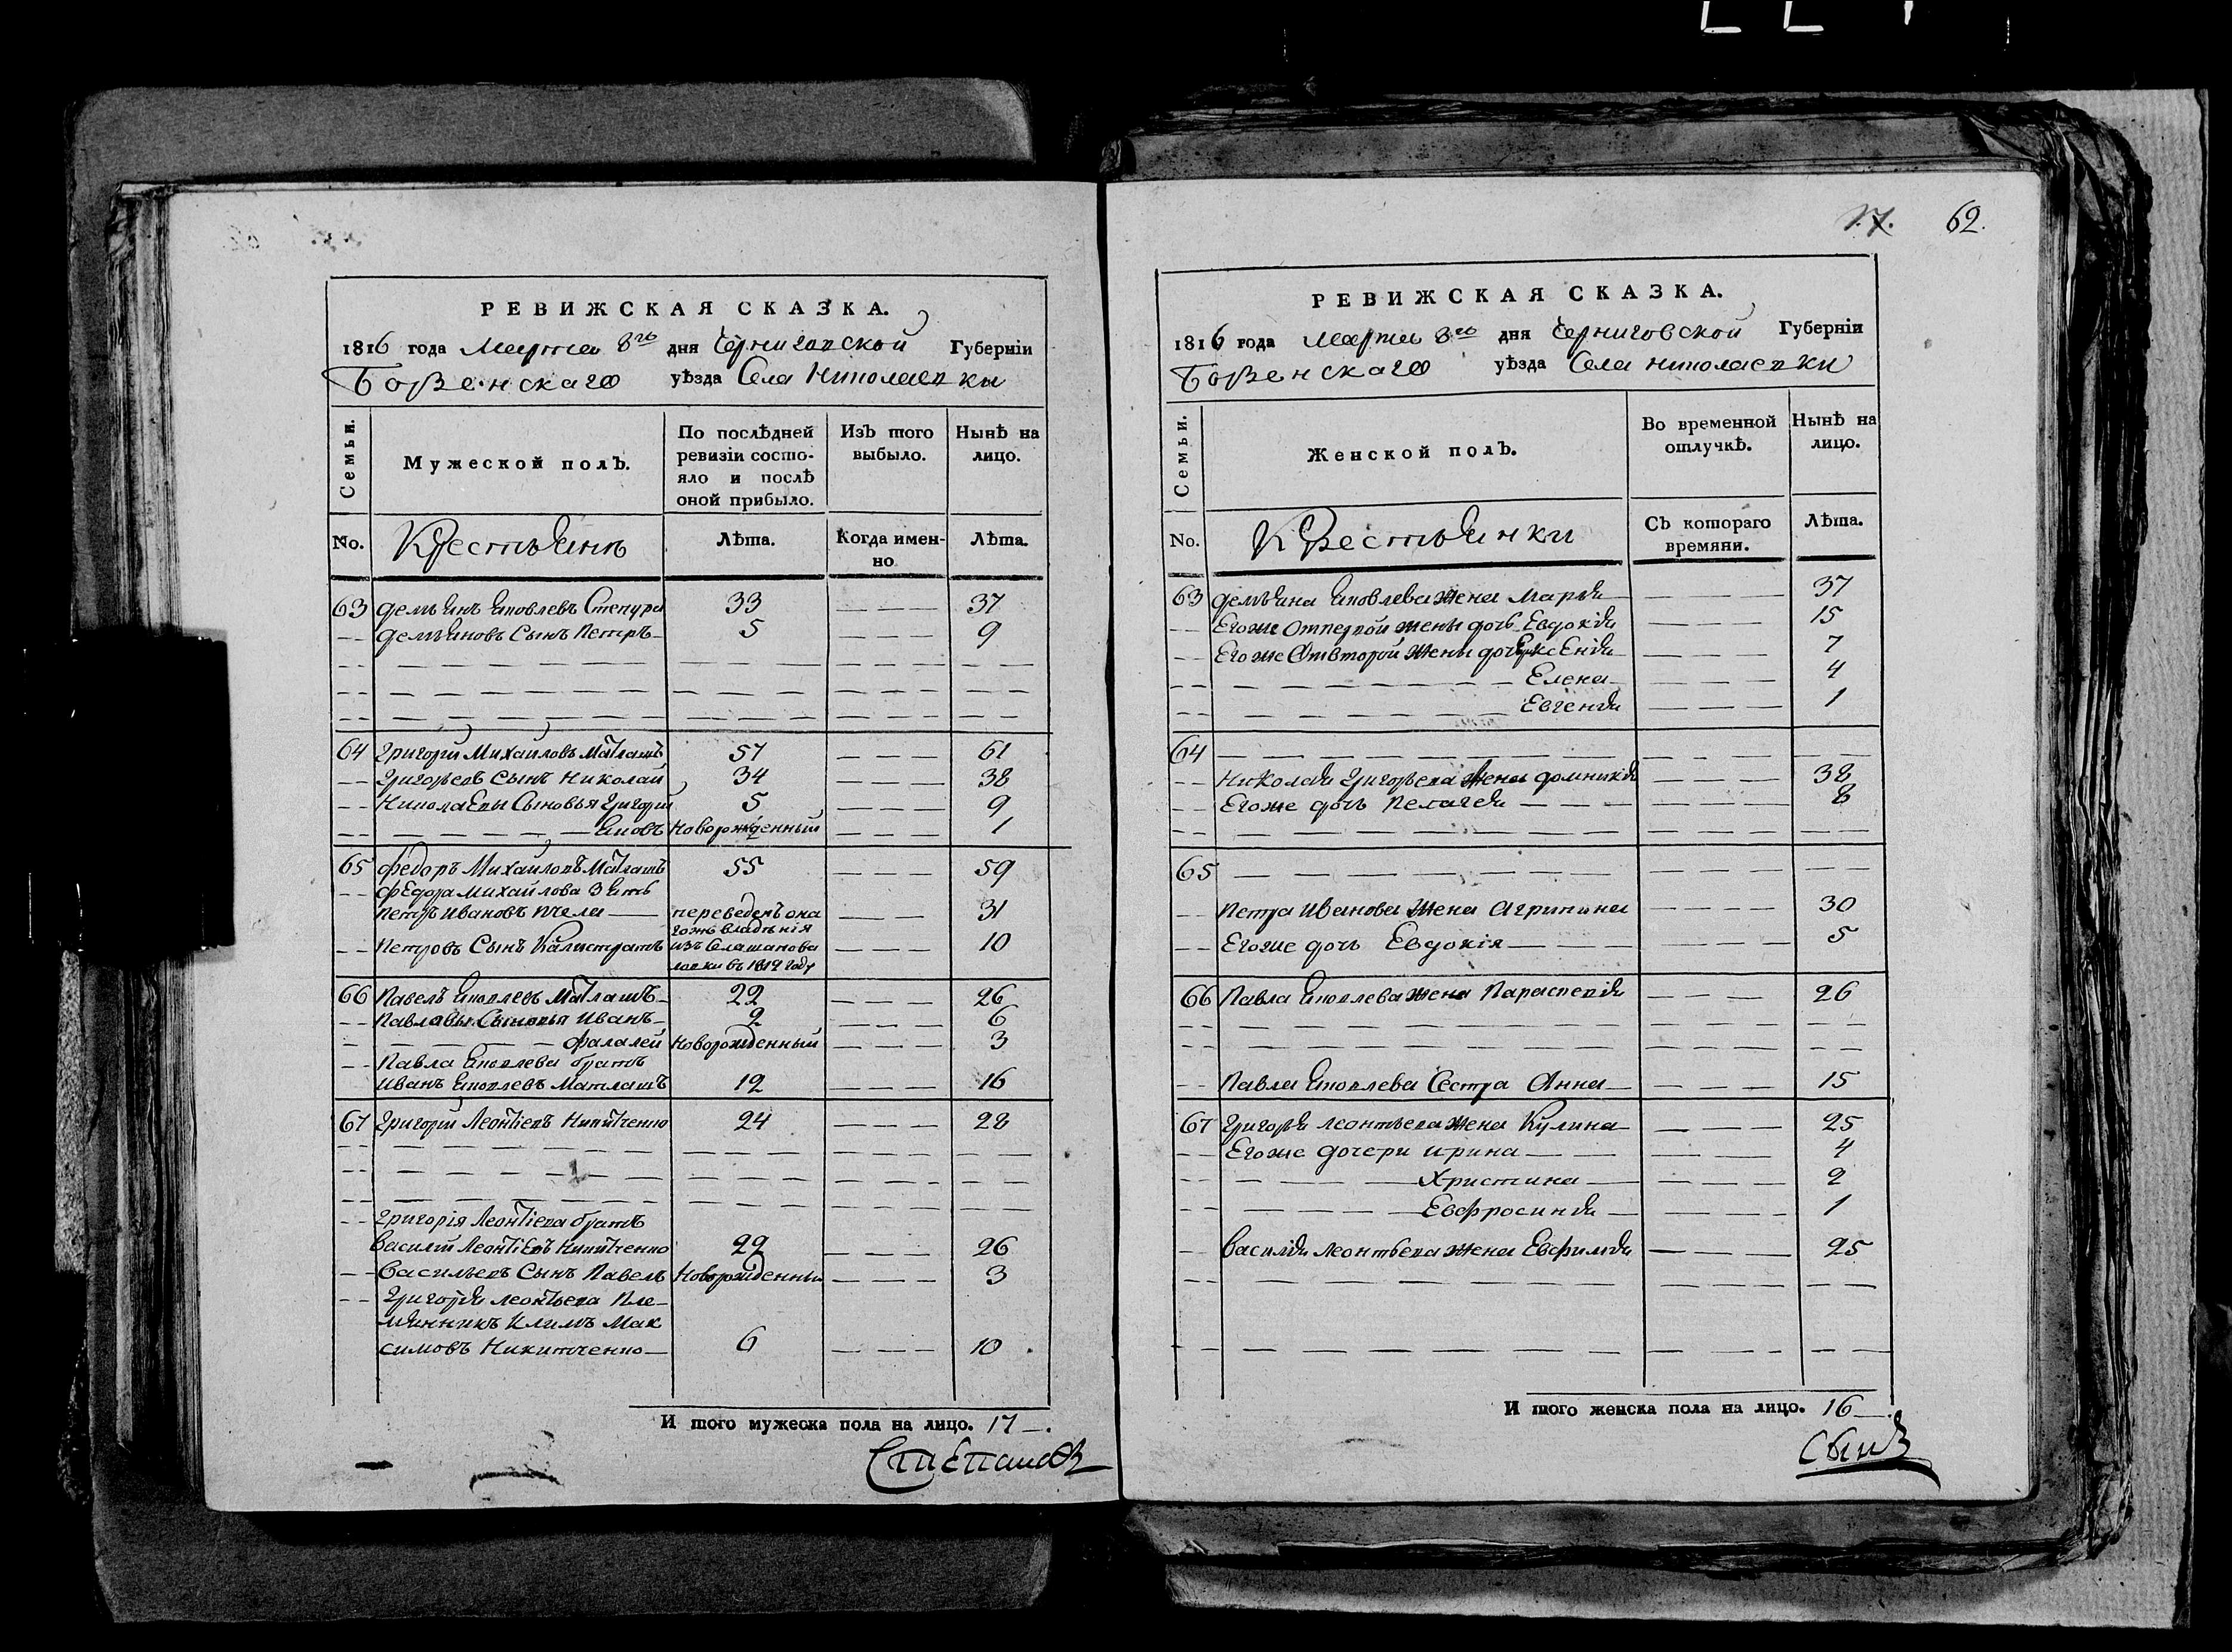 РЕВИЖСКАЯ СКАЗКА.
1816 года Марта 8го дня Черниговской Губерніи
Борзенскаго уѣзда Села Николаевки
Семьи.
Мужеской полЪ.
По послѣдней ревизіи состояло и послѣ оной прибыло.
ИзЪ того выбыло.
НынѣЪ на лицо.
No.
Крестьянъ
Лѣта.
Когда именно
Лѣта.
63 Демьянъ Яковлевъ Степура 33 — — — 37
— Демьяновъ Сынъ Петръ — 5 — — — 9
64 Григорий Михайловъ Матлашъ 57 — — — 61
— Григорьевъ Сынъ Николай 34 — — — 38
— Николаевы Сыновья Григорий 5 — — — 9
— — — Яковъ Новорожденный — — — 1
65 Федоръ Михайловъ Матлашъ 55 — — — 59
— Федора Михайлова Зять
Петръ Ивановъ Пчела — переведенъ она — — 31
гожъ владѣнія
— Петровъ Сынъ Калистратъ изъ — — — 10
въ 1812 году
66 Павелъ Яковлевъ Матлашъ — 22 — — — 26
— Павловы Сыновья Иванъ — 2 — — — 6
— — — Фалалей Новорожденный — — — 3
— Павла Яковлева братъ
Иванъ Яковлевъ Матлашъ 12 — — — 16
67 Григорий Леонтіевъ Никитченко 24 — — — 28
— Григорія Леонтіева братъ
Василий Леонтіевъ Никитченко 22 — — — 26
— Васильевъ Сынъ Павелъ Новорожденный — — — 3
— Григорія Леонтьева Пле-
мянникъ Климъ Мак
симовъ Никитченко — 6 — — — 10
И того мужеска пола на лицо. 17 —.
Степановъ
62.
РЕВИЖСКАЯ СКАЗКА.
1816 года Марта 8го дня Черниговской Губерніи
Борзенскаго уѣзда Села Николаевки
Семьи.
Женской полЪ.
Во временной отлучкѣ.
Нынѣ на лицо.
No.
Крестьянки
СЪ котораго времяни.
Лѣта.
63 Демьяна Яковлева жена Марья — — — 37
— Его же От первой жены дочь Евдокія — — — 15
— Его же От второй жены дочери Ксенія — — — 7
— — — Елена — — — 4
— — — Евгенія — — — 1
64
— Николая Григорьева жена Домникія — — — 38
— Его же дочь Пелагея — — — 8
65
— Петра Иванова жена Агрипина — — — 30
— Его же дочь Евдокія — — — 5
66 Павла Яковлева жена Параскевія — — — 26
— Павла Яковлева Сестра Анна — — — 15
67 Григорія Леонтьева жена Кулина — — — 25
— Его же дочери Ирина — — — 4
— — — Христина — — — 2
— — — Евфросинія — — — 1
— Василія Леонтьева жена Евфимія — — — 25
И того женска пола на лицо. 16 —.
Сынъ